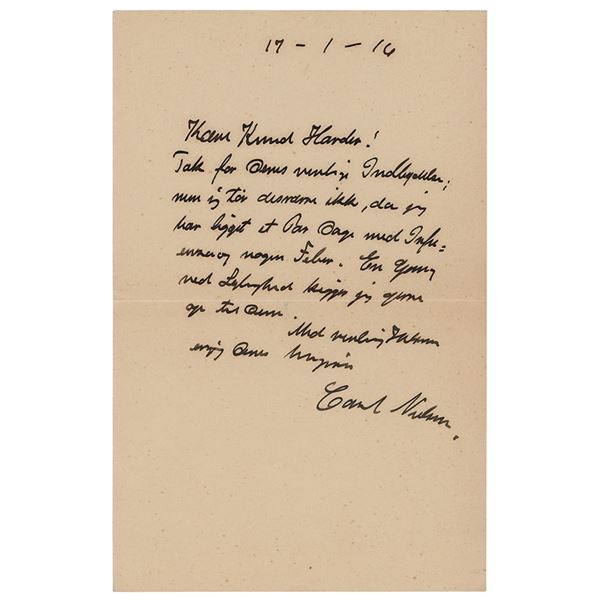 17 – 1 – 16
Kære Knud Harder!
Tak for Deres venlige Indbydelse;
men jeg tør desværre ikke, da jeg
har ligget et Par Dage med Influ=
enza og nogen Feber. En Gang
ved Lejlighed kigger jeg gerne
op til Dem.
Med venlig Hilsen
Deres
Carl Nielsen.